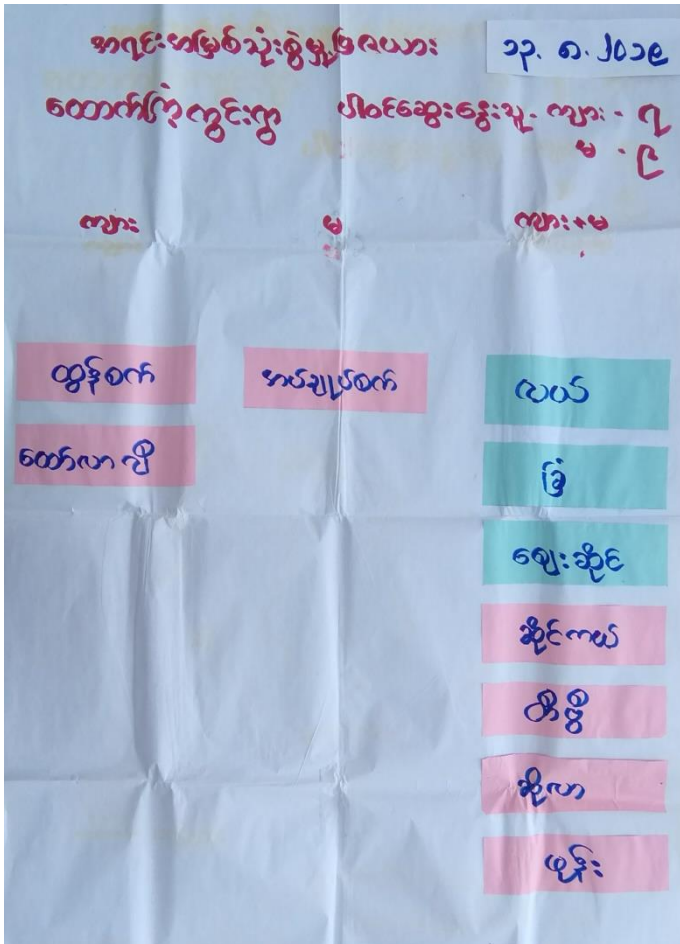 အရင်းအမြစ်သုံးစွဲမှုဖြဇယား
၁၃. ၈. ၂၀၁၉
ထောက်ကြံ့ကွင်းရွာ ပါဝင်ဆွေးနွေးသူ- ကျား - ၇
မ - ၉
ကျား မ ကျား+မ
ထွန်စက် အပ်ချုပ်စက် လယ်
ထော်လာဂျီ
ခြံ
ဈေးဆိုင်
ဆိုင်ကယ်
တီဗွီ
ဆိုလာ
ဖုန်း